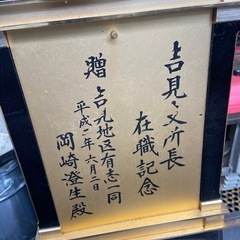 吉見支所長
在職記念
贈 吉見地区有志一同
平成一年六月二日
岡崎澄生殿